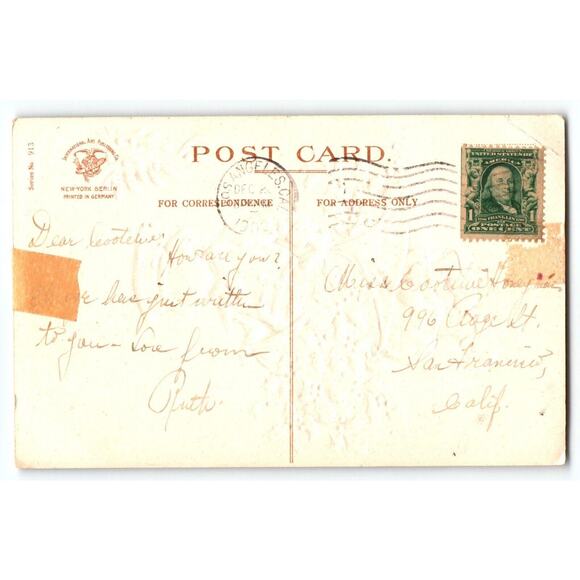 Series No. 913
INTERNATIONAL ART PUBLISHING CO.
NEW YORK BERLIN
PRINTED IN GERMANY
POST CARD.
FOR CORRESPONDENCE
FOR ADDRESS ONLY
LOS ANGELES, CAL.
DEC
UNITED STATES OF
AMERICA
FRANKLIN
1 POSTAGE 1
ONE CENT
Dear Cootchie:
How are you?
has just written
to you - Love from
Ruth.
Miss Cootchie
996 Page St.
San Francisco,
Calif.